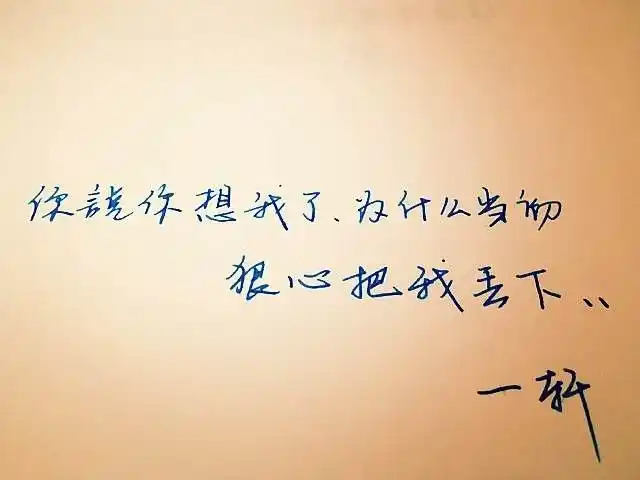 你說你想我了、为什么当初
狠心把我丢下、、
一轩